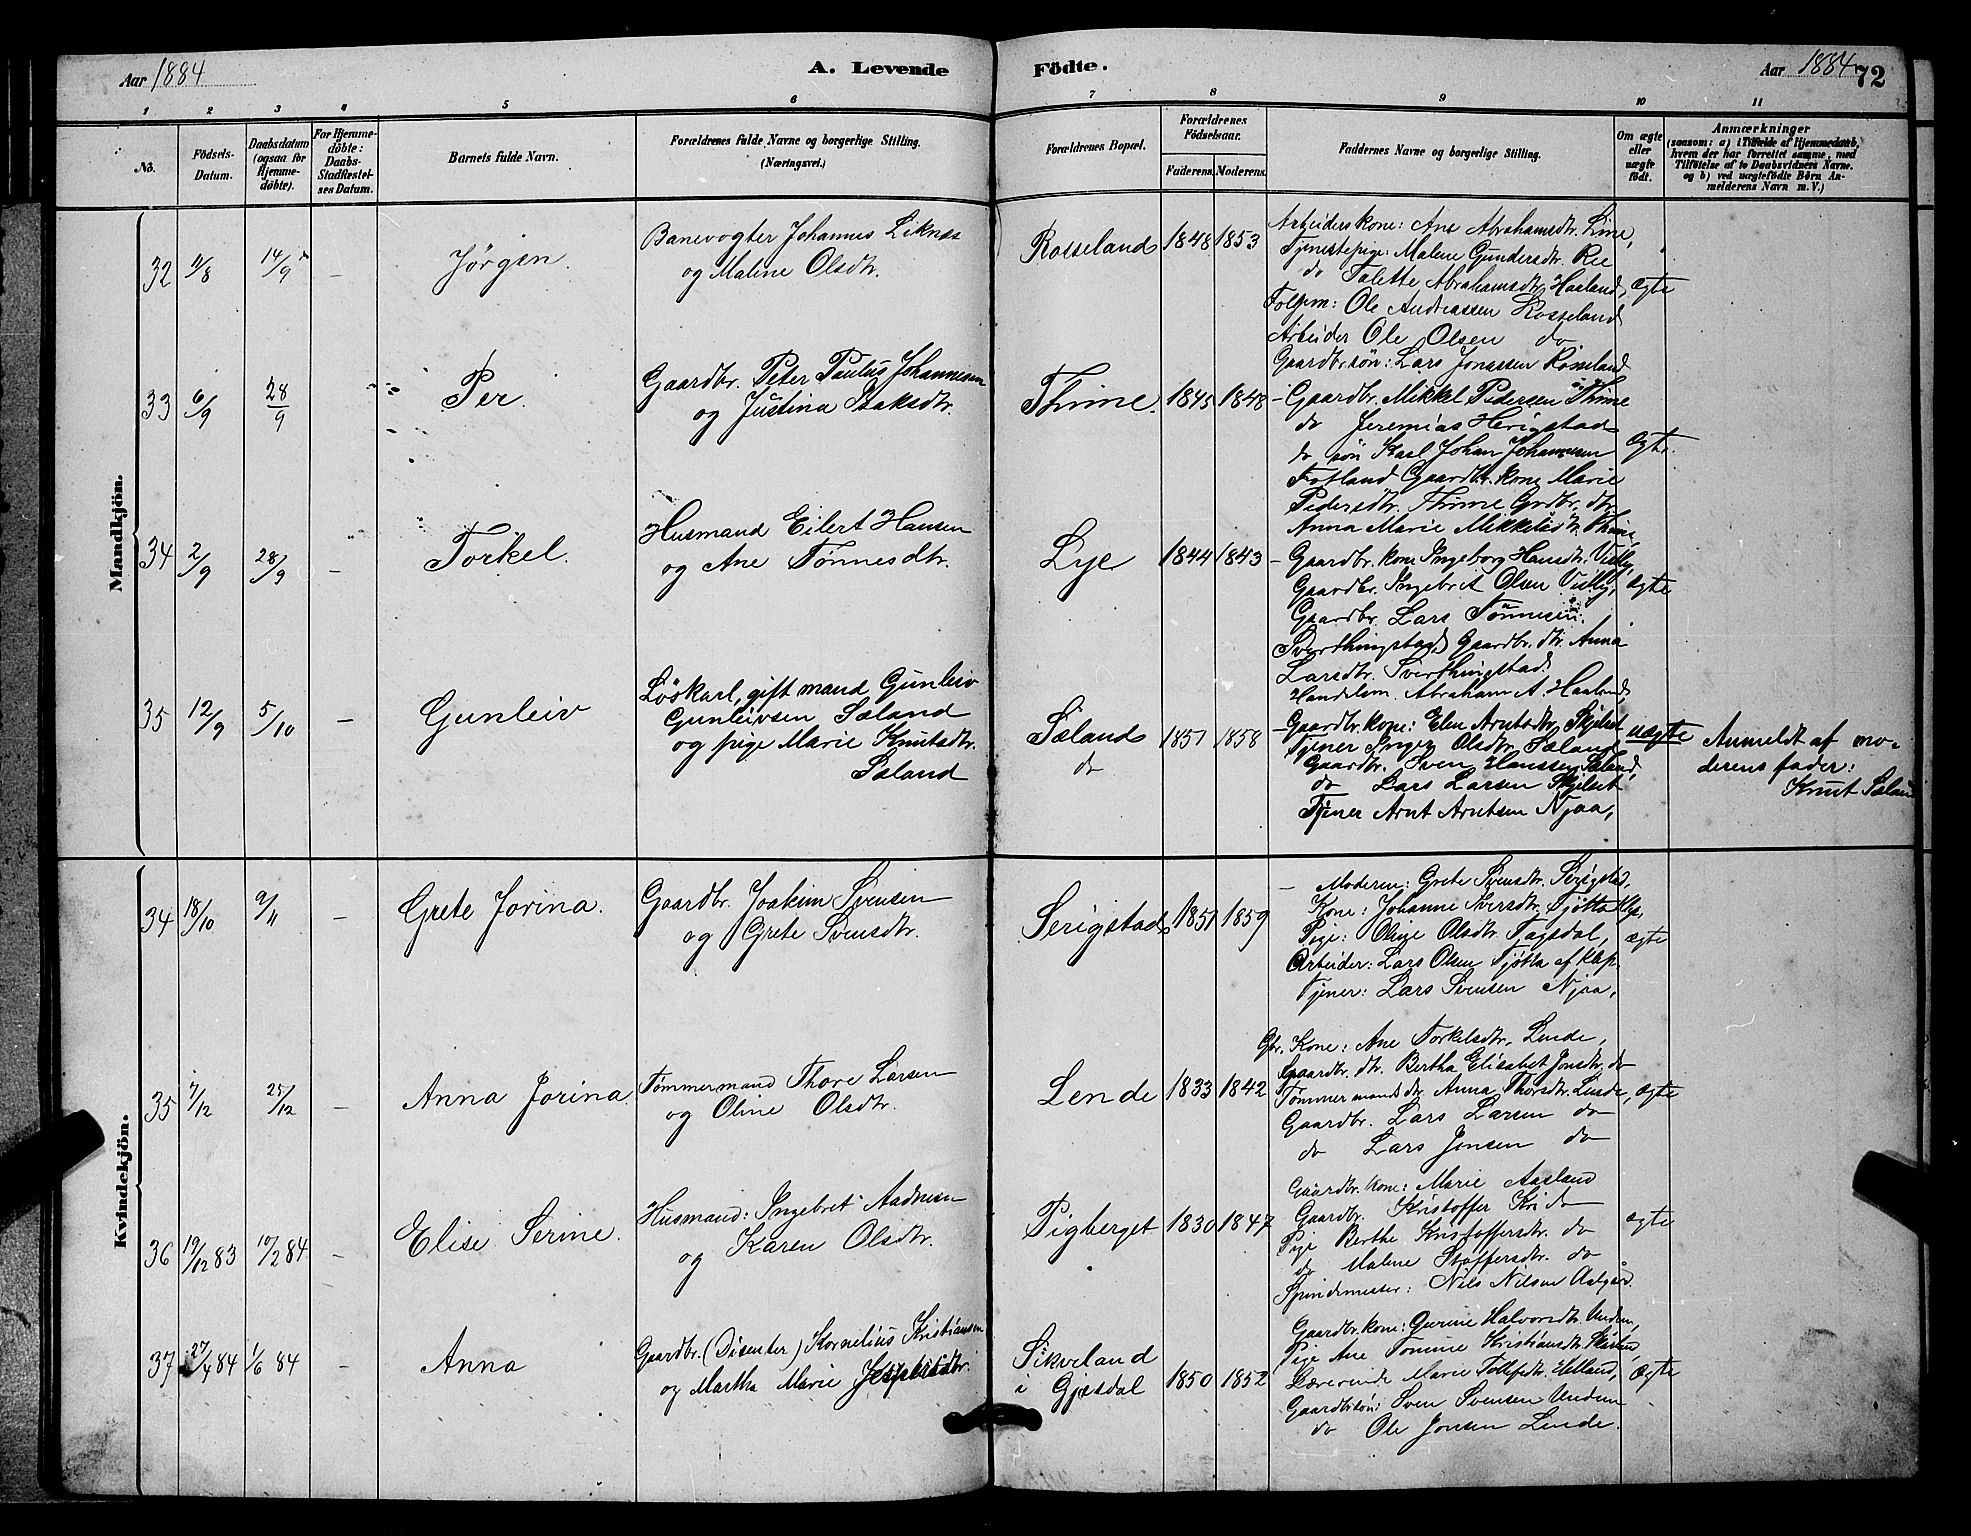 Aar 1884
A. Levende Födte.
Aar 1884 72
1 2 3 4 5 6 7 8 9 10 11
No.
Födsels-Datum.
Daabsdatum (ogsaa for Hjemme-döbte).
For Hjemme-döbte: Daabs-Stadfæstel-ses Datum.
Barnets fulde Navn.
Forældrenes fulde Navne og borgerlige Stilling. (Næringsvei.)
Forældrenes Bopæl.
Forældrenes Födselsaar.
Faderens. Moderens.
Faddernes Navne og borgerlige Stilling.
Om ægte eller uægte födt.
Anmærkninger
(saasom: a) i Tilfælde af Hjemmedaab, hvem der har forrettet samme, med Tilföielse af to Daabsvidners Navne. og b) ved uægtefödte Börn An-melderens Navn m. V.)
Mandkjön.
32 11/8 14/9 – Jörgen.
Banevogter Johannes Liknæs
og Malene Olsdtr.
Rosseland 1848 1853
Arbeiderskone: Ane Abrahamsdtr. Line,
Tjenestepige: Malene Gundersdtr. Ree
do Talette Abrahamsdtr. Haaland,
Folgm: Ole Andreassen Rosseland
Arbeider Ole Olsen do
Gaardbr.sön: Lars Jonassen Rosseland
ægte
33 6/9 28/9 Per.
Gaardbr. Peter Paulus Johannesen
og Justina Isaksdtr.
Thime. 1845 1848
– Gaardbr. Mikkel Pedersen Thime
do Jeremias Herigstad
do sön Karl Johan Johannesen
Fotland Gaardbr. kone Marie
Pedersdtr. Thime Grdbr. dtr.
Anna Marie Mikkelsdtr. Thime,
ægte.
34 2/9 28/9 – Torkel.
Husmand Eilert Hansen
og Ane Tönnesdtr.
Lye 1844 1843
– Gaardbr. kone Ingeborg Hansdtr.
Gaardbr. Ingebrit Olsen
Gaardbr. Lars Tönnesen.
Sverthingstad, Gaardbr. dtr. Anna
Larsdtr. Sverthingstad.
Handelsm. Abraham A. Haaland,
ægte
35 12/9 5/10 – Gunleiv
Löskarl, gift mand Gunleiv
Gunleivsen Sæland
og pige Marie Knutsdtr.
Sæland
Sæland 1857 1858
do
– Gaardbr.kone: Elen Arntsdtr. Skjelset
Tjener Inger Olsdtr. Sæland
Gaardbr. Sven Hanssen Sæland,
do Lars Larsen Skjelset
Tjener Arnt Arntsen Njaa,
uægte
Anmeldt af mo-
derens fader:
Knut Sæland
Kvindekjön.
34 18/10 9/11 – Grete Jorina.
Gaardbr. Joakim Svensen
og Grete Svensdtr.
Serigstad 1851 1859
– Moderen: Grete Svensdtr. Serigstad,
Kone: Johanne Iversdtr. Tjötta Klep,
Pige: Oline Olsdtr. Tagsdal,
Arbeider: Lars Olsen Tjötta af Klep.
Tjener: Lars Svensen Njaa,
ægte
35 7/12 25/12 – Anna Jorina.
Tömmermand Thore Larsen
og Oline Olsdtr.
Lende 1833 1842
Gbr. Kone: Ane Torkelsdtr. Lende,
Gaardbr. dtr. Bertha Elisabet Jonsdtr. do
Tömmermands dtr. Anna Thorsdtr. Lende,
Gaardbr. Lars Larsen do
do Lars Jensen do
ægte
36 19/12 83 10/2 84 – Elise Serine.
Husmand: Ingebret Aadnesen
og Karen Olsdtr.
Pigberget 1830 1847
Gaardbr. kone: Marie Aasland
Gaardbr. Kristoffer do
Pige Berthe Kristoffersdtr. do
do Malene Stoffersdtr. do
Spindemester: Nils Nilsen Aalgård.
ægte
37 27/4 84 1/6 84 – Anna
Gaardbr. (Disenter) Kornelius Kristiansen
og Martha Marie Jespersdtr.
Sikveland
i Gjesdal 1850 1852
Gaardbr.kone: Gurine Halvorsdtr. Undem,
Pige Ane Tomine Kristiansdtr.
Lærerinde Marie Tollefsdtr. Ueland,
Gaardbr.sön: Sven Svensen Undem
do Ole Jonsen Lende.
ægte